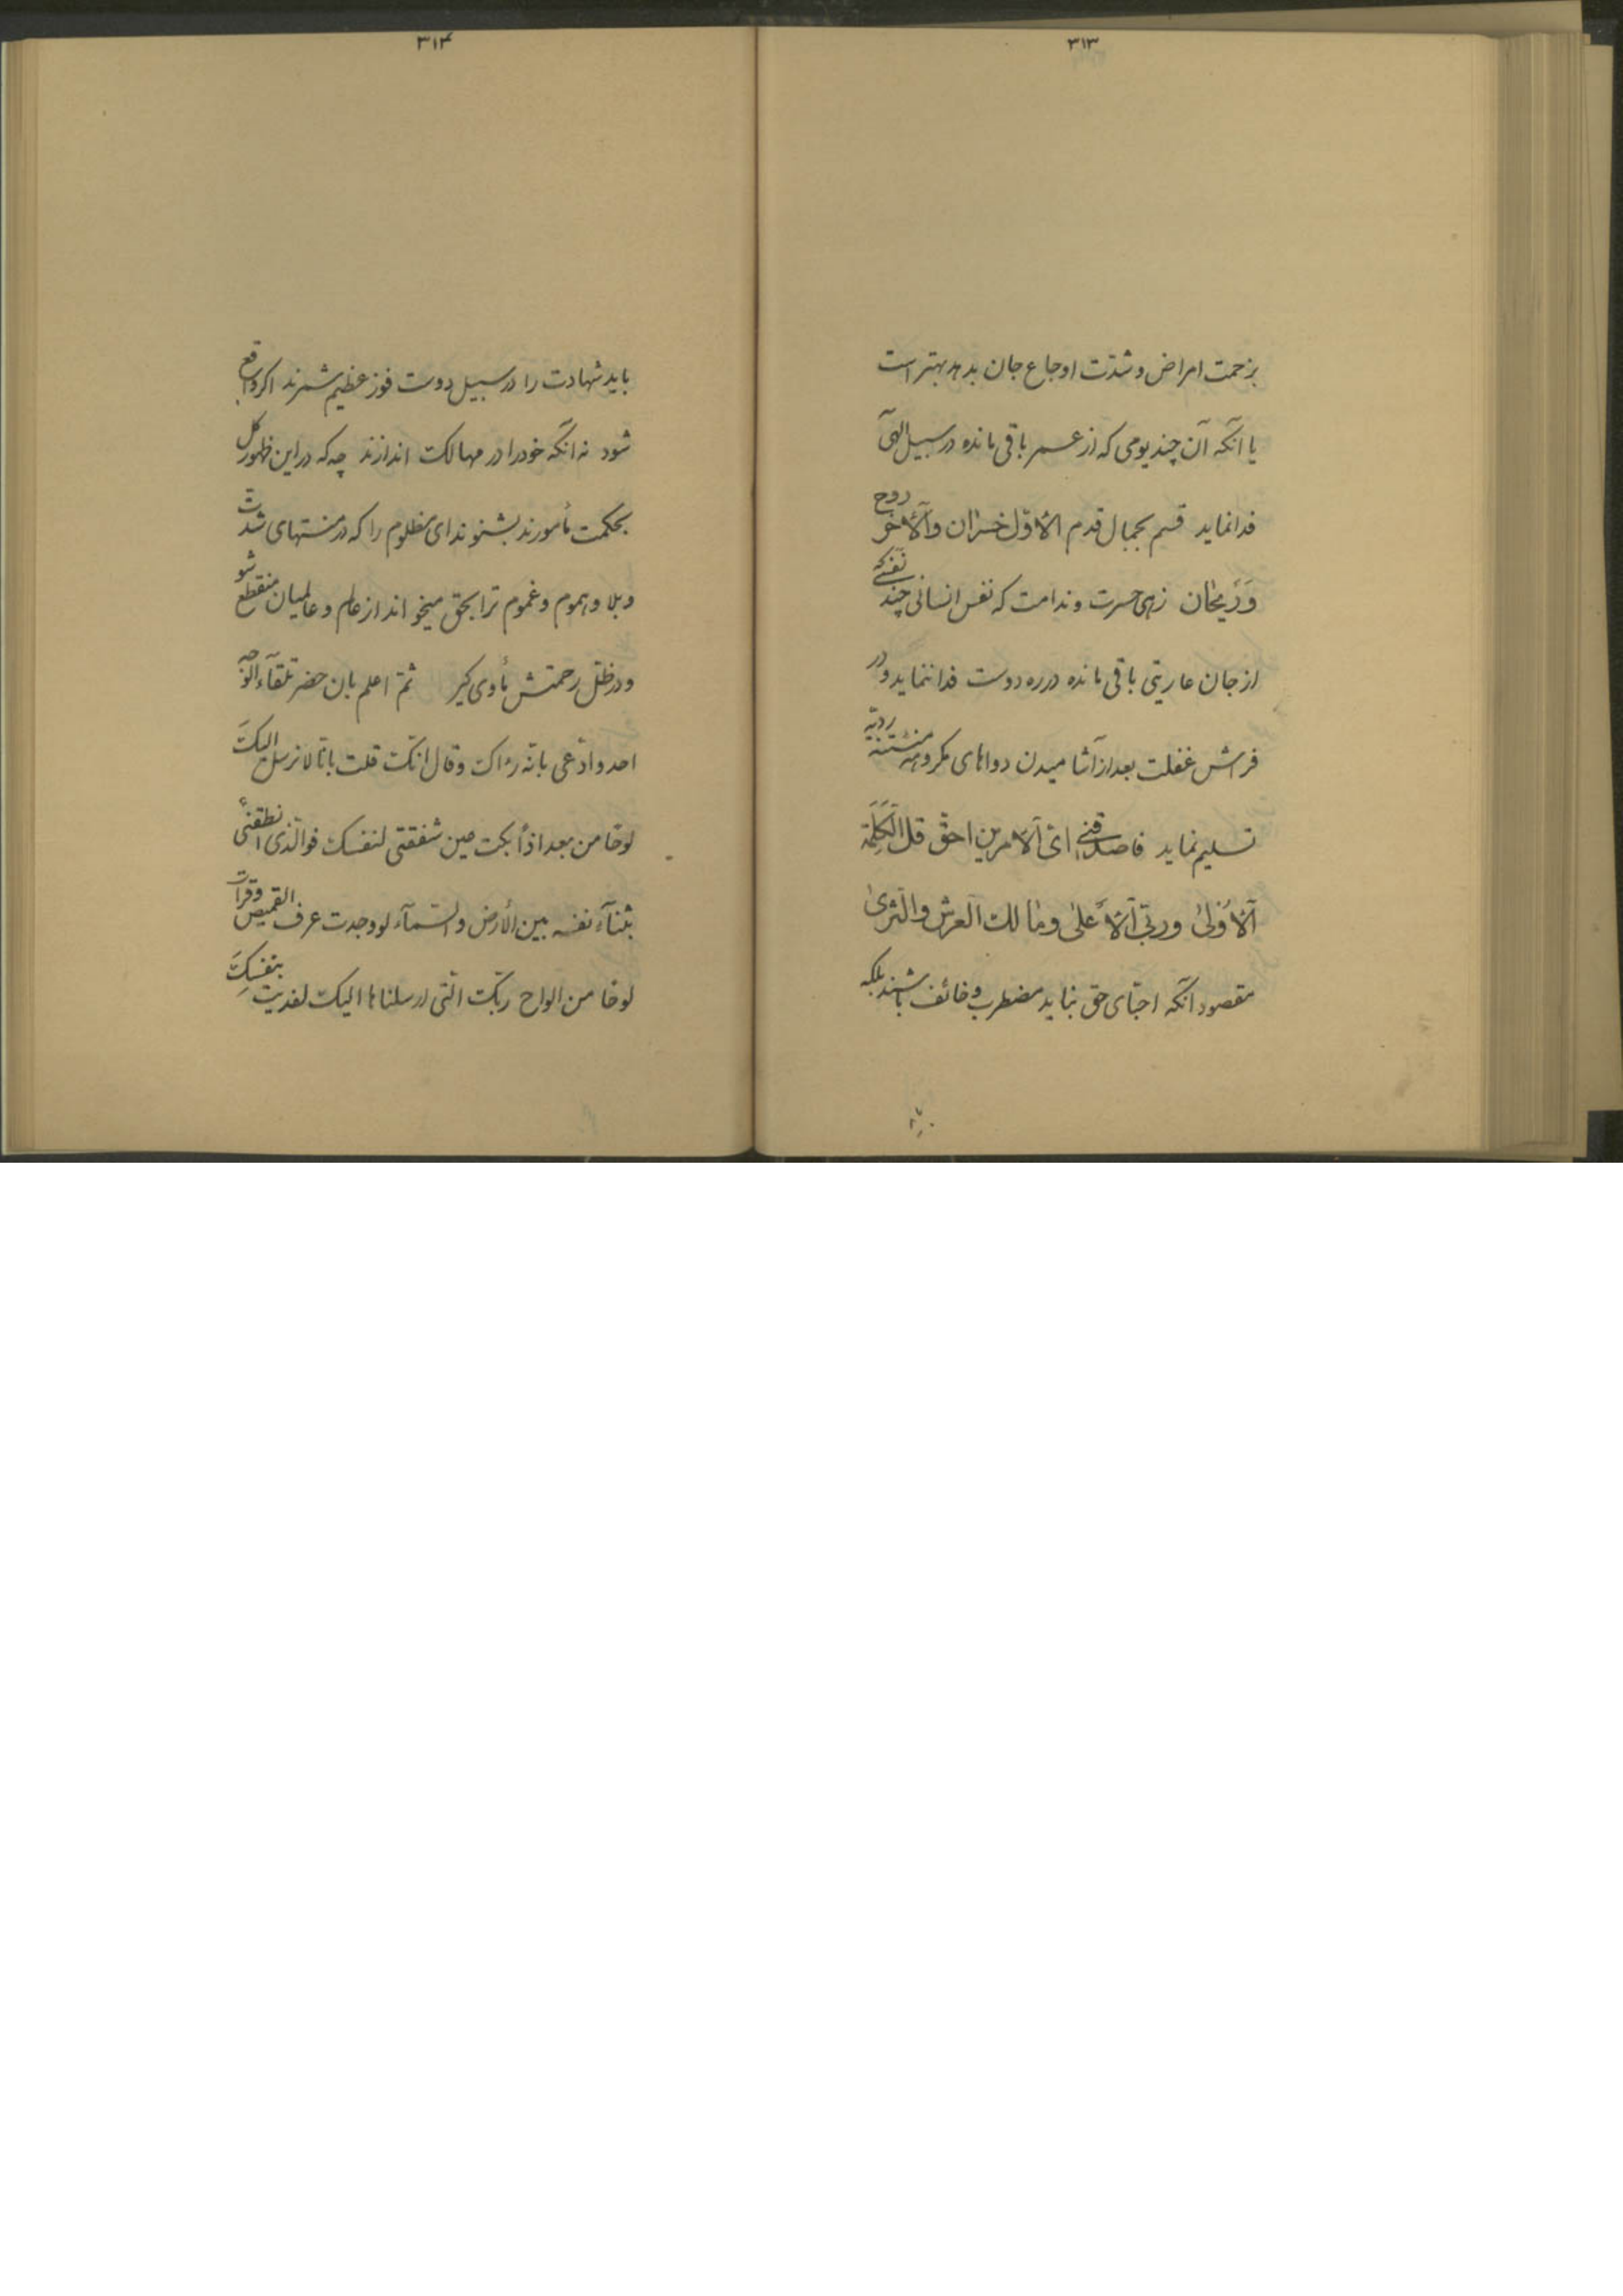 ۳۱۳
بزحمت امراض و شدّت اوجاع جان بدهد بهتر است
یا آنکه آن چند یومی که از عمر باقی مانده در سبیل الهی
فدا نماید قسم بجمال قدم الأوّل خسران والأخر روح
وریحان زهی حسرت و ندامت که نفس انسانی چند نفسی که
از جان عاریتی باقی مانده در ره دوست فدا ننماید و در
فراش غفلت بعد از آشامیدن دواهای مکروهه منتنه ردیّه
تسلیم نماید فاصدقنی ایّ الأمرین احقّ قل الکلمة
الأولی وربّی الأعلی ومالک العرش والثّری
مقصود آنکه احبّای حق نباید مضطرب و خائف باشند بلکه
۳۱۴
باید شهادت را در سبیل دوست فوز عظیم شمرند اگر واقع
شود نه آنکه خود را در مهالک اندازند چه که در این ظهور کل
بحکمت مأمورند بشنو ندای مظلوم را که در منتهای شدّت
و بلا و هموم و غموم ترا بحق میخواند از عالم و عالمیان منقطع شو
و در ظلّ رحمتش مأوی گیر ثمّ اعلم بان حضر تلقآء الوجه
احد وادّعی بانّه رءاک وقال انّک قلت بانّا لا نرسل الیک
لوحا من بعد اذاً بکت عین شفقتی لنفسک فوالّذی انطقنی
بثنآء نفسه بین الأرض والسّمآء لو وجدت عرف القمیص وقرأت
لوحا من الواح ربّک الّتی ارسلناها الیک لفدیت بنفسک